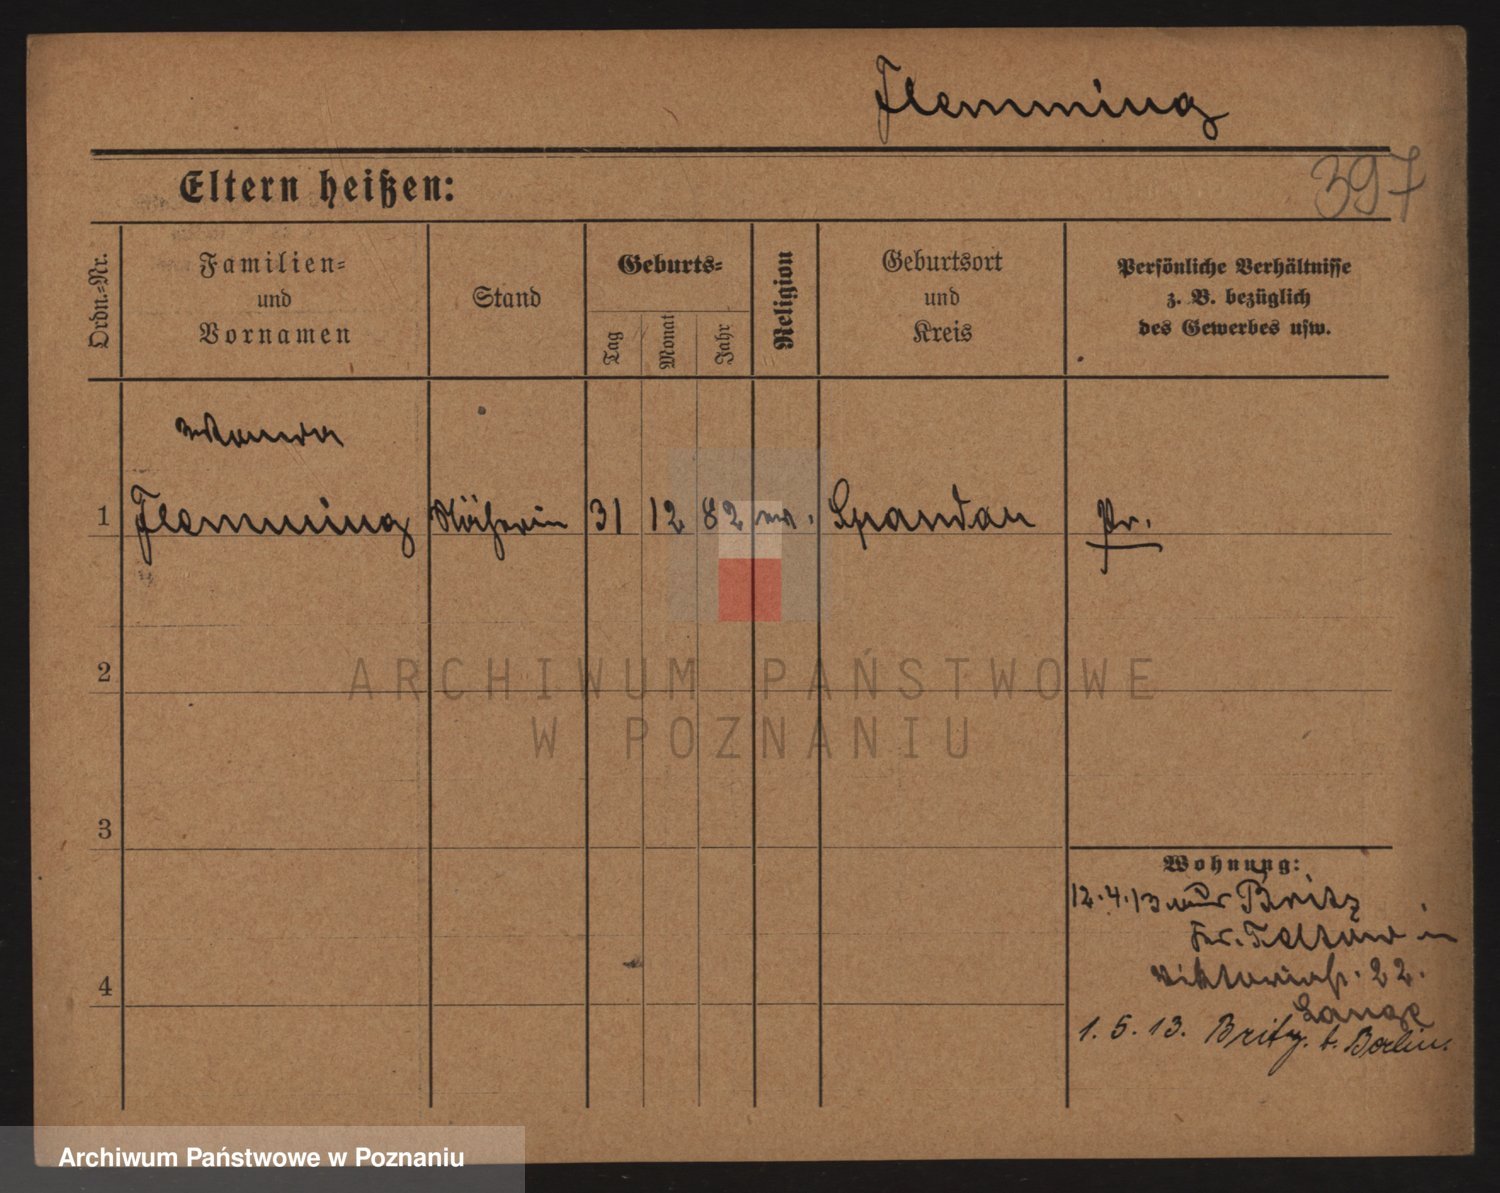 Flemming
397
Eltern heißen:
Ordn.-Nr.
Familien-
und
Vornamen
Stand
Geburts-
Tag
Monat
Jahr
Religion
Geburtsort
und
Kreis
Persönliche Verhältnisse
z. B. bezüglich
des Gewerbes usw.
Wanda
1 Flemming Näherin 31 12 82 Spandau Pr.
2
3
4
Wohnung:
12.4.13 Britz
Kr. Teltow
Viktoriastr. 22.
Lange
1. 5. 13. Britz. b. Berlin.
ARCHIWUM PAŃSTWOWE
W POZNANIU
Archiwum Państwowe w Poznaniu